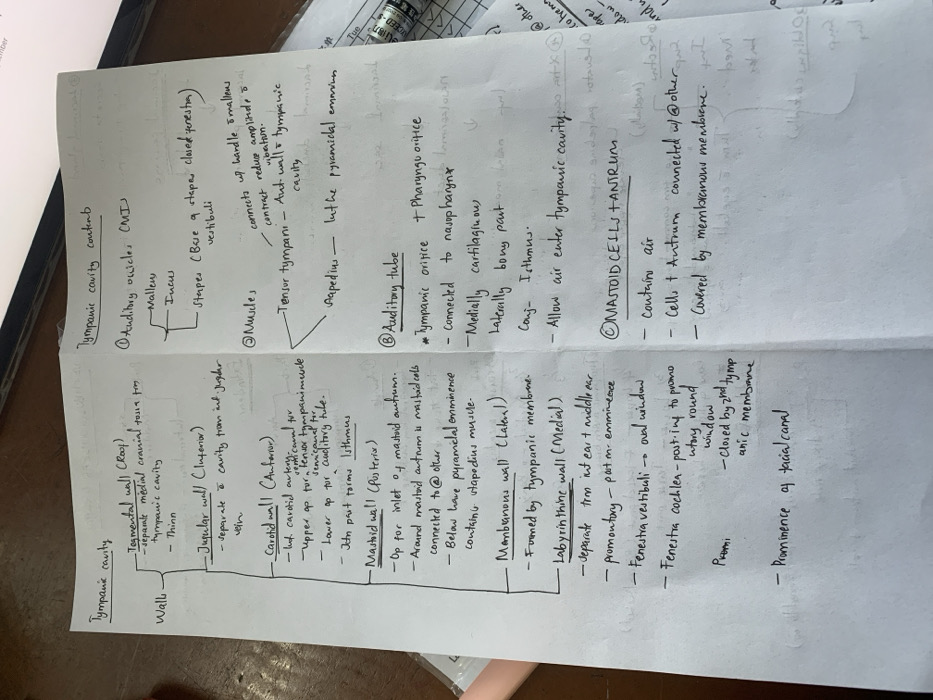 Tympanic cavity
Walls
Tegmental wall (Roof)
- separate medial cranial fossa frm
tympanic cavity
- Thinn
Jugular wall (Inferior)
- separate cavity from int jugular
vein
Carotid wall (Anterior)
- Int. carotid artery
- Upper op for tensor tympani muscle
semicanal for
- Lower op for auditory tube.
- Jctn part forms Isthmus
Mastoid wall (Posterior)
- Op for inlet of mastoid antrum.
- Around mastoid antrum is mastoid cells
connected to @ other
- Below have pyramidal eminence
contains stapedius muscle.
Membranous wall (Lateral)
- Fromed by tympanic membrane.
Labyrinthine wall (Medial)
- separate frm int ear & middle ear
- promontory - part mc emminence
- Fenestra vestibuli → oval window
- Fenestra cochlea - post inf to promo
ntory round
window
- Closed by 2nd tymp
anic membrane
Promi
- Prominence of facial canal
Tympanic cavity contents
① Auditory ossicles (MIS)
Malleus
Incus
Stapes (Base of stapes closed fenestra)
vestibuli
② Muscles
connects w/ handle malleus
contract reduce amplitude
vibration.
Tensor tympani - Ant. wall tympanic
cavity
stapedius — In the pyramidal eminence
Ⓑ Auditory tube
* Tympanic orifice + Pharyngx orifice
- Connected to nasopharynx
- Medially cartilaginous
Laterally bony part
Conj- Isthmus.
- Allow air enter tympanic cavity.
Ⓒ MASTOID CELLS & ANTRUM
- Contains air
- Cells & Antrum connected w/ @ other
- Covered by membranous membrane.